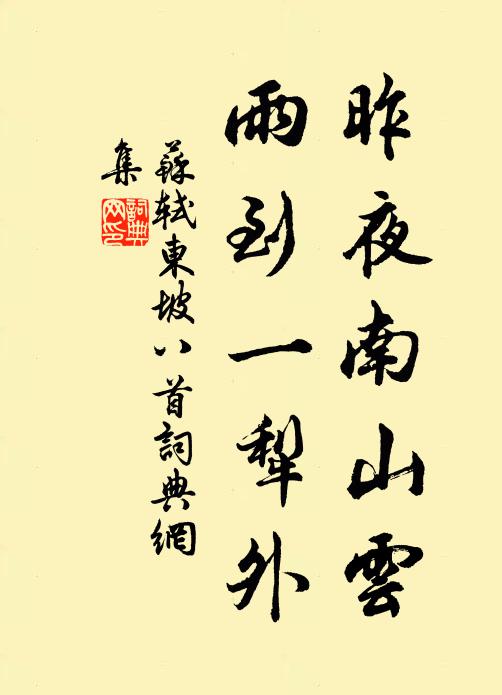 昨夜南山雲
雨到一犂外
蘇軾東坡八首詞典網
集
詞典
网印